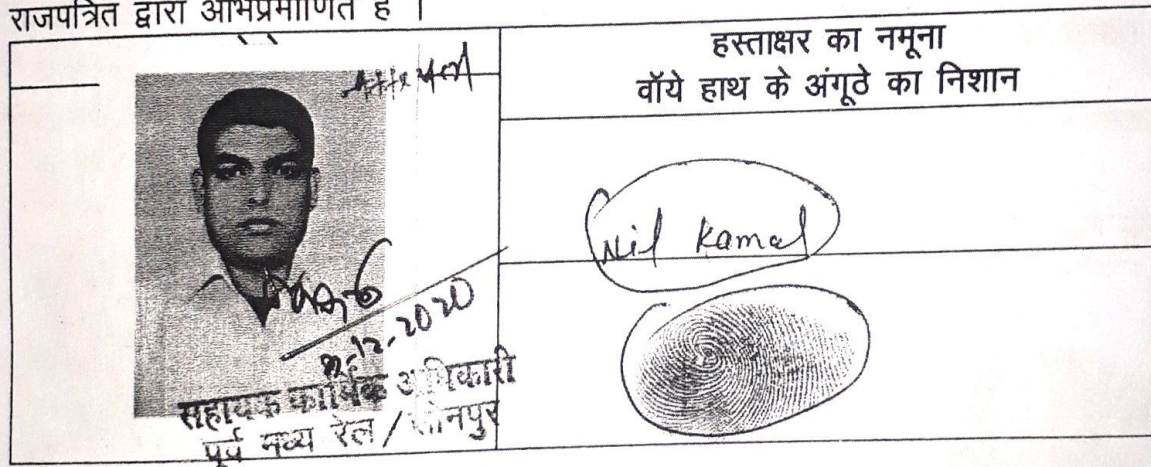 राजपत्रित द्वारा अभिप्रमाणित है ।
हस्ताक्षर का नमूना
वॉये हाथ के अंगूठे का निशान
Nil Kamal
-12-2020
सहायक कार्मिक अधिकारी
पूर्व मध्य रेल / सोनपुर